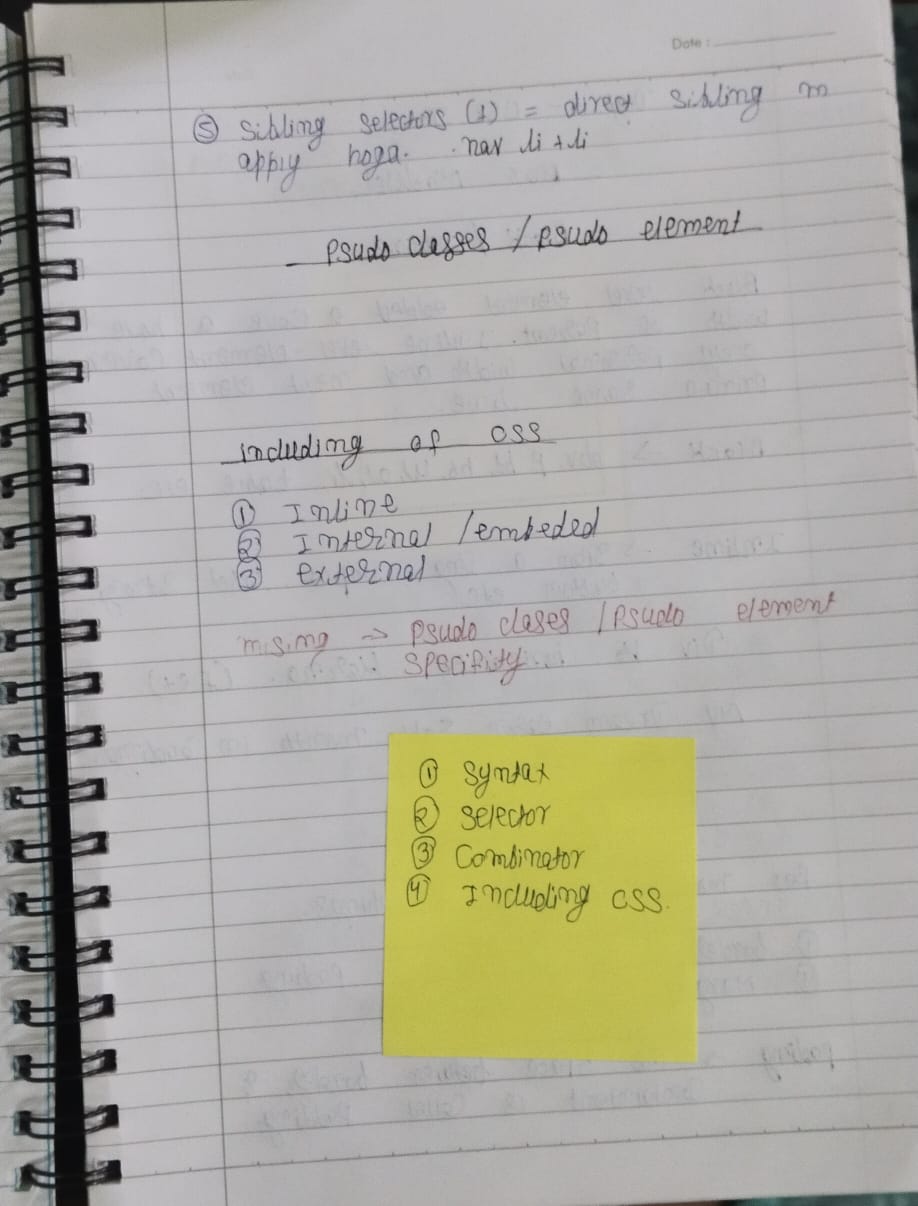 Date :
⑤ Sibling selectors (+) = direct sibling m
apply hoga. .nav li + li
Psudo classes / psudo element
including of css
① Inline
② Internal / embeded
③ external
missing → psudo clases / psudo element
specifity
① Syntax
② selector
③ Combinator
④ Including css.